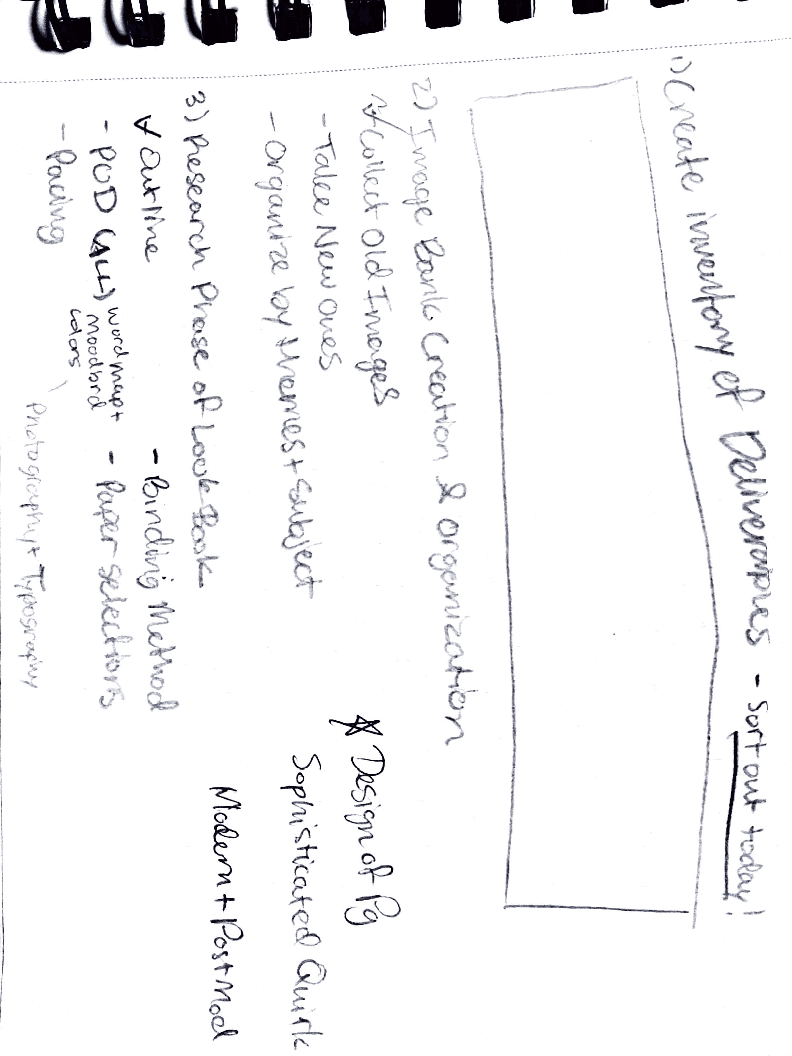 1) Create inventory of Deliverables - Sort out today!
2) Image Bank Creation & organization
✓ Collect Old Images
- Take New ones
- organize by themes + subject
☆ Design of Pg
Sophisticated Quirk
Modern + Post Mod
3) Research Phase of Look Book
✓ Outline
- POD (ALL) word map + moodbrd colors
- Pacing
- Binding Method
- Paper selections
Photography + Typography